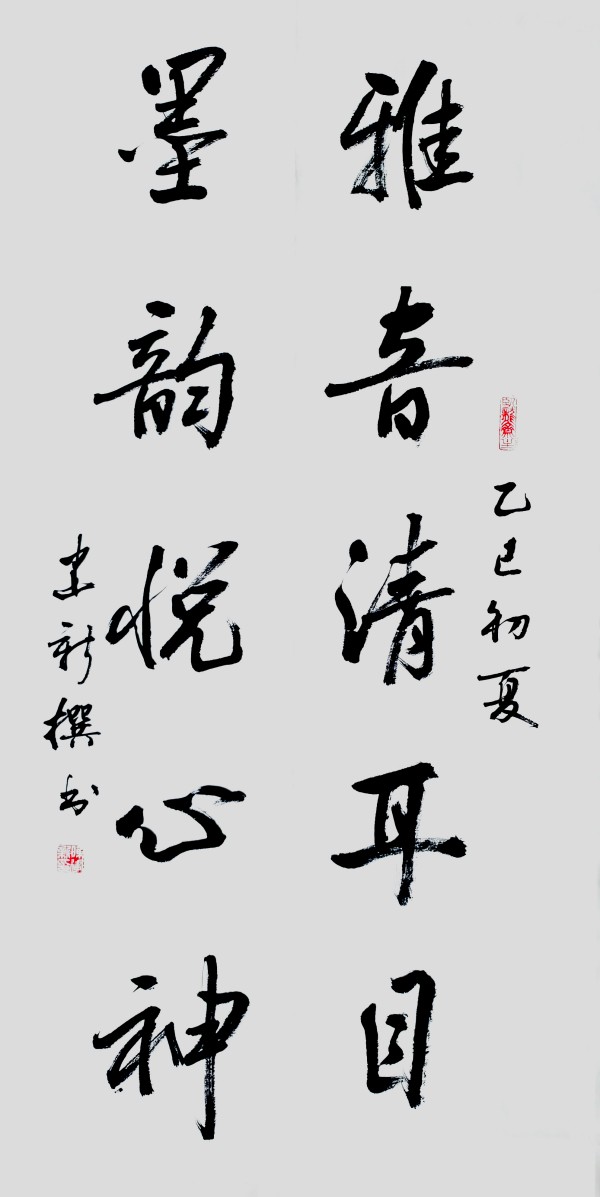 乙巳初夏
雅音清耳目
墨韵悦心神
新撰书